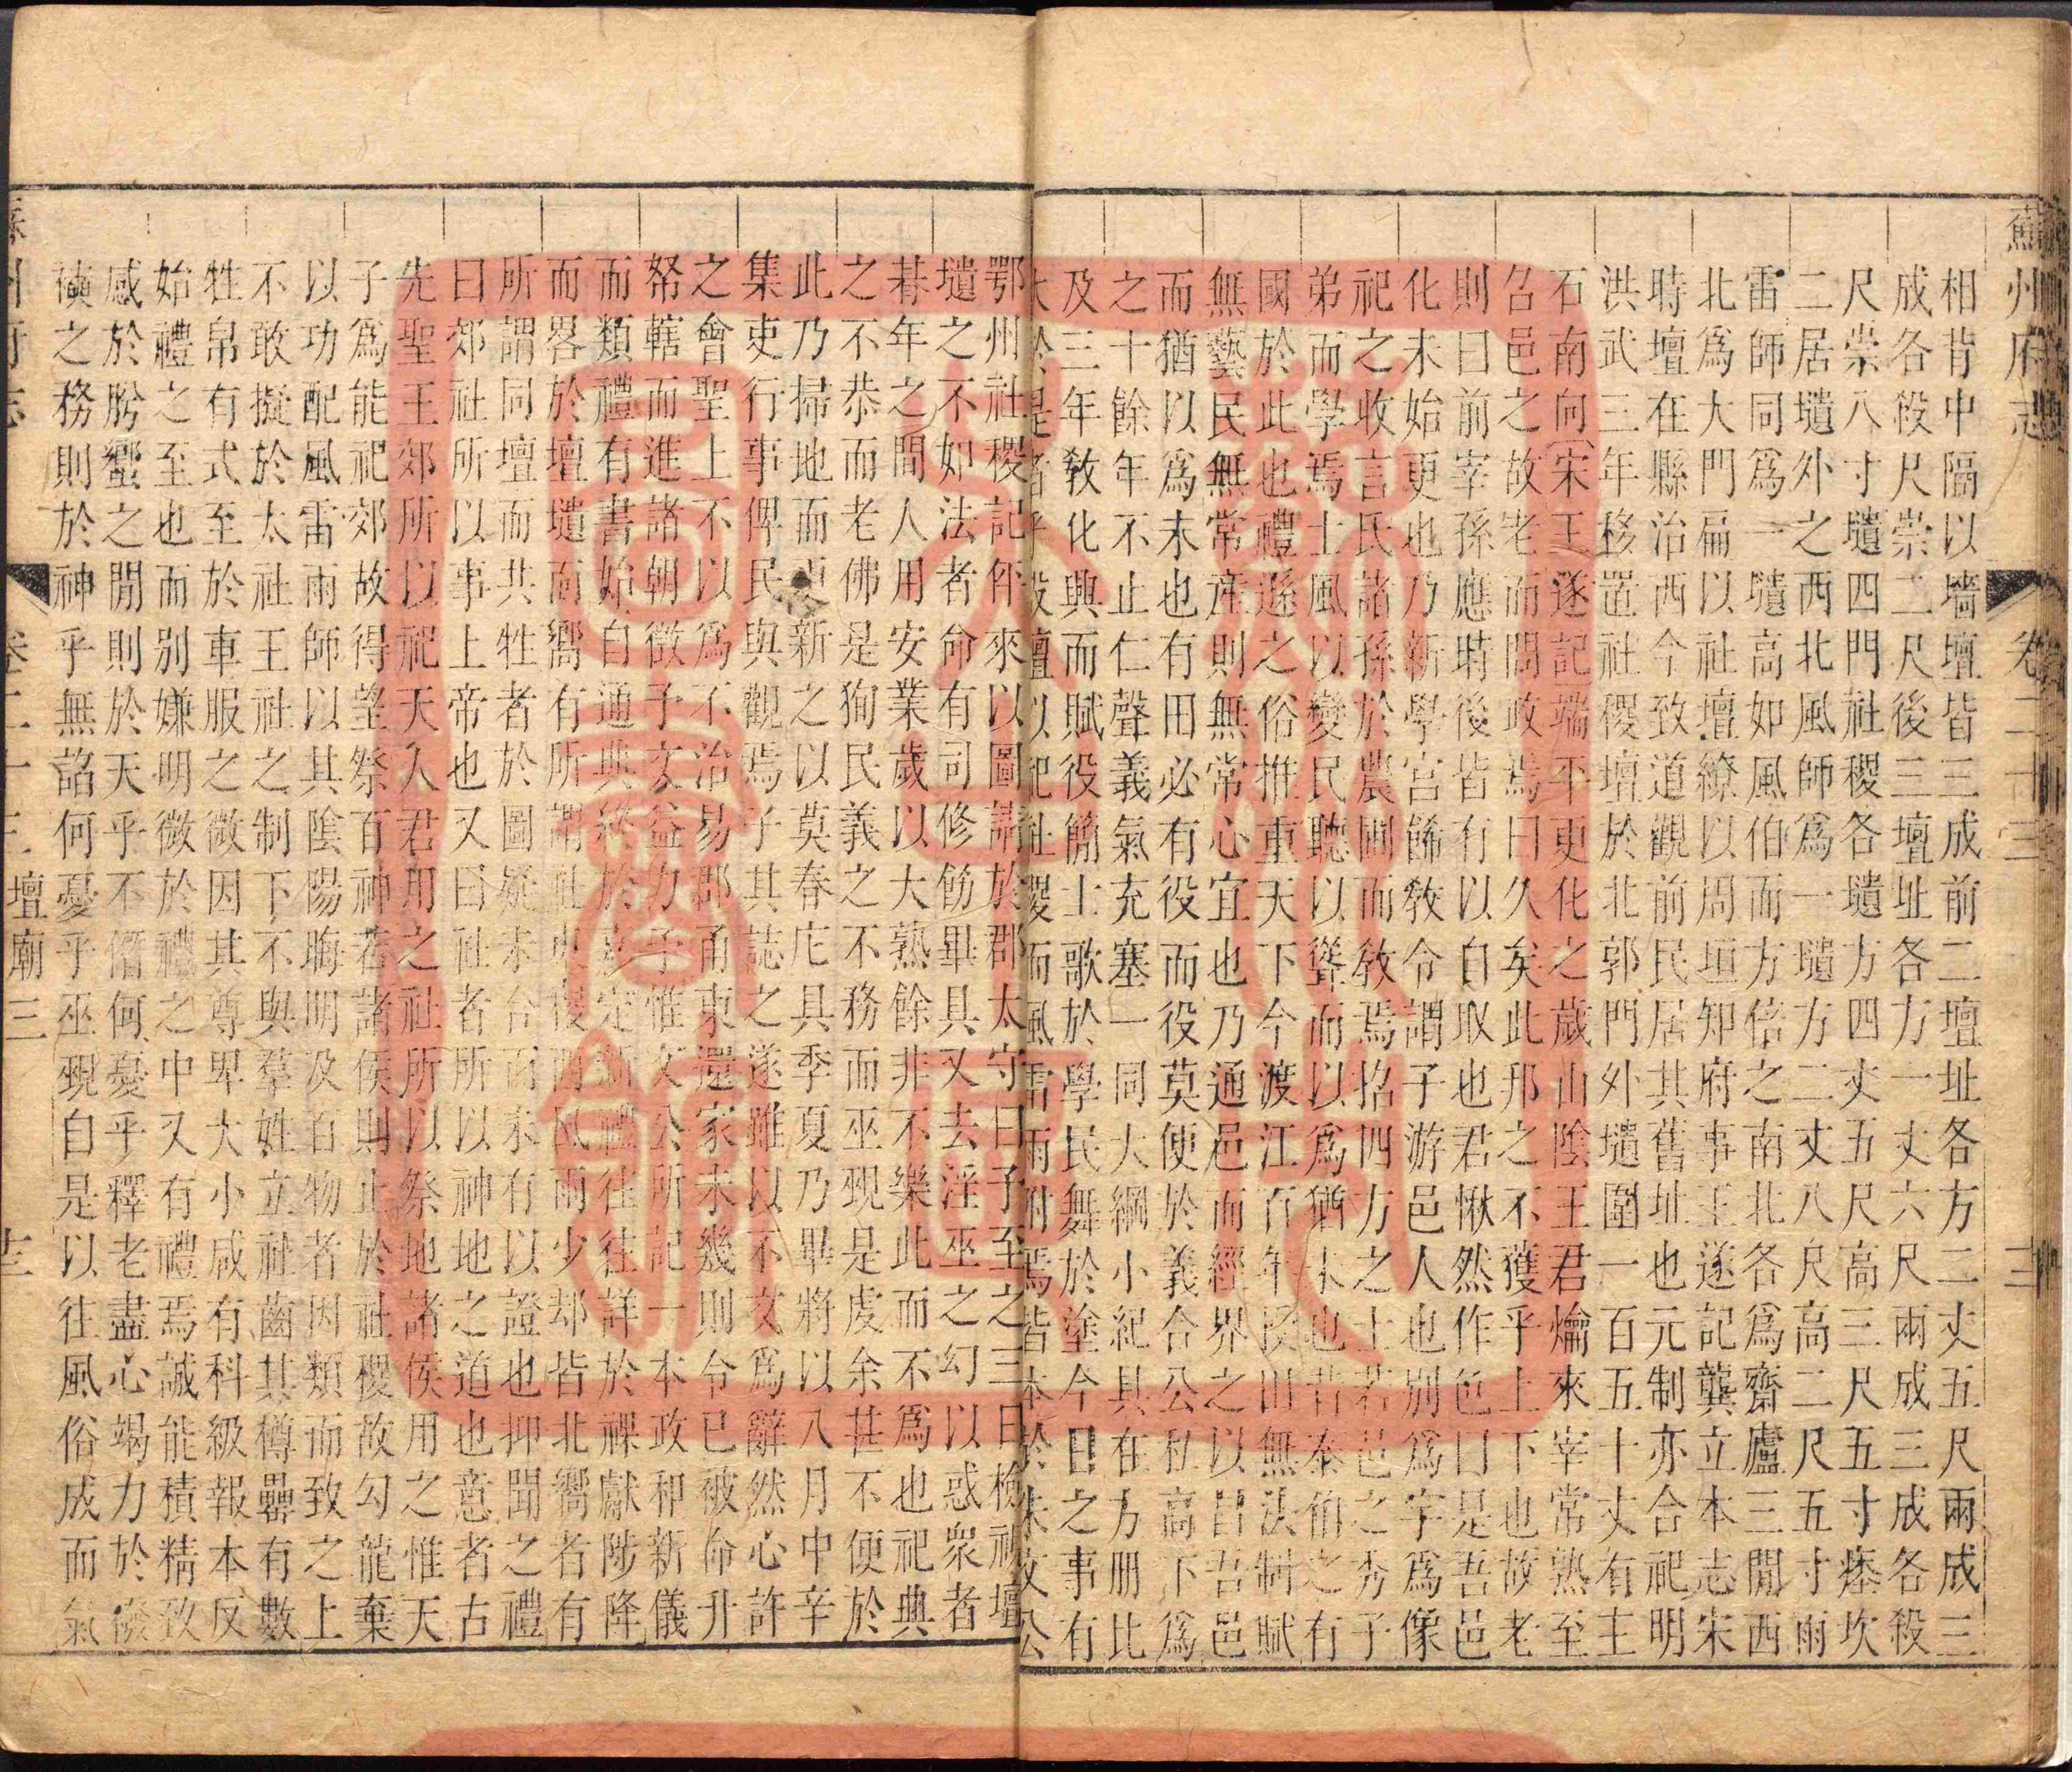 蘇州府志 卷二十三
相背中隔以墻壇皆三成前二壇址各方二丈五尺兩成三
成各殺尺崇二尺後三壇址各方一丈六尺兩成三成各殺
尺崇八寸壝四門社稷各壝方四丈五尺高三尺五寸瘞坎
二居壝外之西北風師爲一壝方二丈八尺高二尺五寸雨
雷師同爲一壝高如風伯而方倍之南北各爲齋廬三間西
北爲大門扁以社壇繚以周垣知府事王遂記龔立本志宋
時壇在縣治西今致道觀前民居其舊址也元制亦合祀明
洪武三年移置社稷壇於北郭門外壝圍一百五十丈有主
石南向宋王遂記端平更化之歲山陰王君爚來宰常熟至
召邑之故老而問政焉曰久矣此邦之不獲乎上下也故老
則曰前宰孫應時後皆有以自取也君愀然作色曰是吾邑
化未始更也乃新學宮餙敎令謂子游邑人也別爲字爲像
祀之收言氏諸孫於農圃而敎焉招四方之士若邑之秀子
弟而學焉士風以變民聽以聳而以爲猶未也昔泰伯之有
國於此也禮遜之俗推重天下今渡江百年田無法制賦
無藝民無常產則無常心宜也乃通邑而經界之以吾邑
而猶以爲未也有田必有役而役莫便於義合公私高下爲
之十餘年不止仁聲義氣充塞一同大綱小紀其在方冊比
及三年敎化興而賦役簡士歌於學民舞於塗今日之事有
大於是者乎設壇以祀社稷而風雷雨附焉皆本於朱文公
鄂州社稷記伻來以圖請於郡太守曰予至之三日檢視壇
壝之不如法者命有司修飭畢具又去淫巫之幻以惑衆者
朞年之間人用安業歲以大熟餘非不樂此而不爲也祀典
之不恭而老佛是狥民義之不務而巫覡是虔余甚不便於
此乃掃地而更新之以莫春庀具季夏乃畢將以八月中辛
集吏行事俾民與觀焉子其誌之遂雖以不文爲辭然心許
之會聖上不以爲不治易郡甬東還家未幾則令已被命升
帑轄而進諸朝徵予文益力予惟文公所記一本政和新儀
而類禮有書始自通典終於嘉定新禮往往詳於祼獻陟降
而畧於壇壝而嚮有所謂社東稷西風雨少却皆北嚮者有
所謂同壇而共牲者於圖疑未合而未有以證也抑聞之禮
曰郊社所以事上帝也又曰社者所以神地之道也意者古
先聖王郊所以祀天人君用之社所以祭地諸侯用之惟天
子爲能祀郊故得望祭百神若諸侯則止於社稷故勾龍棄
以功配風雷雨師以其陰陽晦明及百物者因類而致之上
不敢擬於太社王社之制下不與羣姓立社齒其樽罍有數
牲帛有式至於車服之微因其尊卑大小咸有科級報本反
始禮之至也而別嫌明微於禮之中又有禮焉誠能積精致
感於肹蠁之間則於天乎不僭何憂乎釋老盡心竭力於襏
襫之務則於神乎無諂何憂乎巫覡自是以往風俗成而氣
蘇州府志 卷二十三 壇廟三